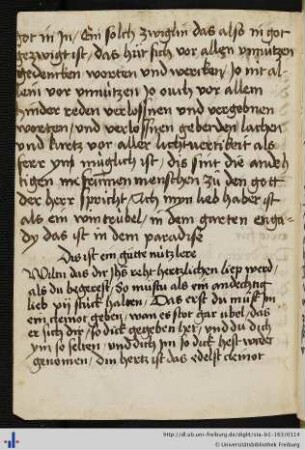 got in In / Ein solch zwiglin das also in got
gezwigt ist / das hüt sich vor allen vnnützen
gedencken worten vnd wercken / Jo nit al
lein vor vnnützen Jo ouch vor allem
hinder reden verlossnen vnd vergebnen
worten / vnd verlossnen geberden lachen
vnd kurtz vor aller lichtvertikeit als
ferr yms müglich ist / dis sint die andech
tigen menschen zů den gott
der herr spricht / Ich myn lieb haber ist
als ein wintrúbel / in dem garten enga
dy das ist in dem paradise
Das ist ein gůtte nútz lere
Wiltu das dir Jhs reht hertzlichen liep werd /
als du begerest / So mustu als ein andechtig
lieb vij stúck halten / Das erst du můst Jm
ein cleinot geben / wan es stot gar übel / das
er sich dir / so dick gegeben het / vnd du dich
ym so selten / vnd dich Jm so dick hest wider
genomen / din hertz ist das edelst cleinot
http://dl.ub.uni-freiburg.de/diglit/
© Universitätsbibliothek Freiburg